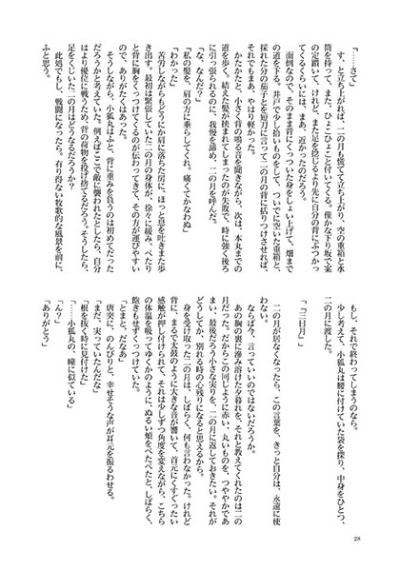 「……さて」
す、と立ち上がれば、二の月も慌てて立ち上がり、空の重箱と水
筒を持って、また、ひょこひょこと付いてくる。僅かな下り坂で案
の定躓いて、けれど、また足を捻じるより先に自分の背にぶつかっ
てくるくらいには、まあ、近かったのだろう。
面倒なので、そのまま背に引っついた身をしょい上げて、畑まで
の道を下る。井戸で少し拾いものをして、ついでに空いた重箱と、
採れた分の茄子とを短刀に言って二の月の背に括りつけさせれば、
それでもまあ、やはり軽かった。
たかたかと、小さく背の鳴る音を聞きながら、次は、本丸までの
道を歩く。結えた髪が挟まれてしまったのが失敗で、時に強く後ろ
に引っ張られるのに、我慢を諦め、二の月を呼んだ。
「な、なんだ？」
「私の髪を、肩の方に垂らしてくれ。痛くてかなわぬ」
「わかった」
苦労しながらもどうにか肩に落ちた房に、ほっと息を吐きまた歩
き出す。最初は緊張していた二の月の身体が、徐々に緩み、べたり
と背に胸をくっつけてくるのが伝わってきて、その方が運びやすい
ので、ありがたくはあった。
そうしながら、小狐丸はふと、背に重みを負うのは初めてだった
だろうかと考えていた。例えばここで敵に襲われたとしたら、自分
はより優位に戦うため、背の荷物を投げ捨てるだろう。そうしたら、
足をくじいた二の月はどうなるだろうか？
此処でもし、戦闘になったら。有り得ない牧歌的な風景を前に、
ふと思う。
もし、それで終わってしまうのなら。
少し考えて、小狐丸は腰に付けていた袋を探り、中身をひとつ、
二の月に渡した。
「、三日月」
二の月が居なくなったら、この言葉を、きっと自分は、永遠に使
わない。
ならばもう、言っていいのではないだろうか。
あの胸の裏に滲み溶けた夕暮れを、それと教えてくれたのは二の
月だった。だからこの同じように赤い、丸いものを、つややかであ
まい、最後だろう小さな実りを、二の月に返しておきたい。それが
どうしてか、別れる時の心残りになると思えるから。
身を受け取った二の月は、しばらく、何も言わなかった。けれど
背に、まるで太鼓のように大きな音が響いて、首元にくすぐったい
感触が押し付けられて、それは少しずつ角度を変えながら、こちら
の体温を吸ってゆくかのように、ぬるい頬をぺたぺたと、しばらく、
飽きもせずくっつけていた。
「とまと、だなあ」
唐突に、のんびりと、幸せそうな声が耳元を振るわせる。
「まだ、実っていたんだな」
「根を抜く時に見付けた」
「……小狐丸の、瞳に似ている」
「ん？」
「ありがとう」
28